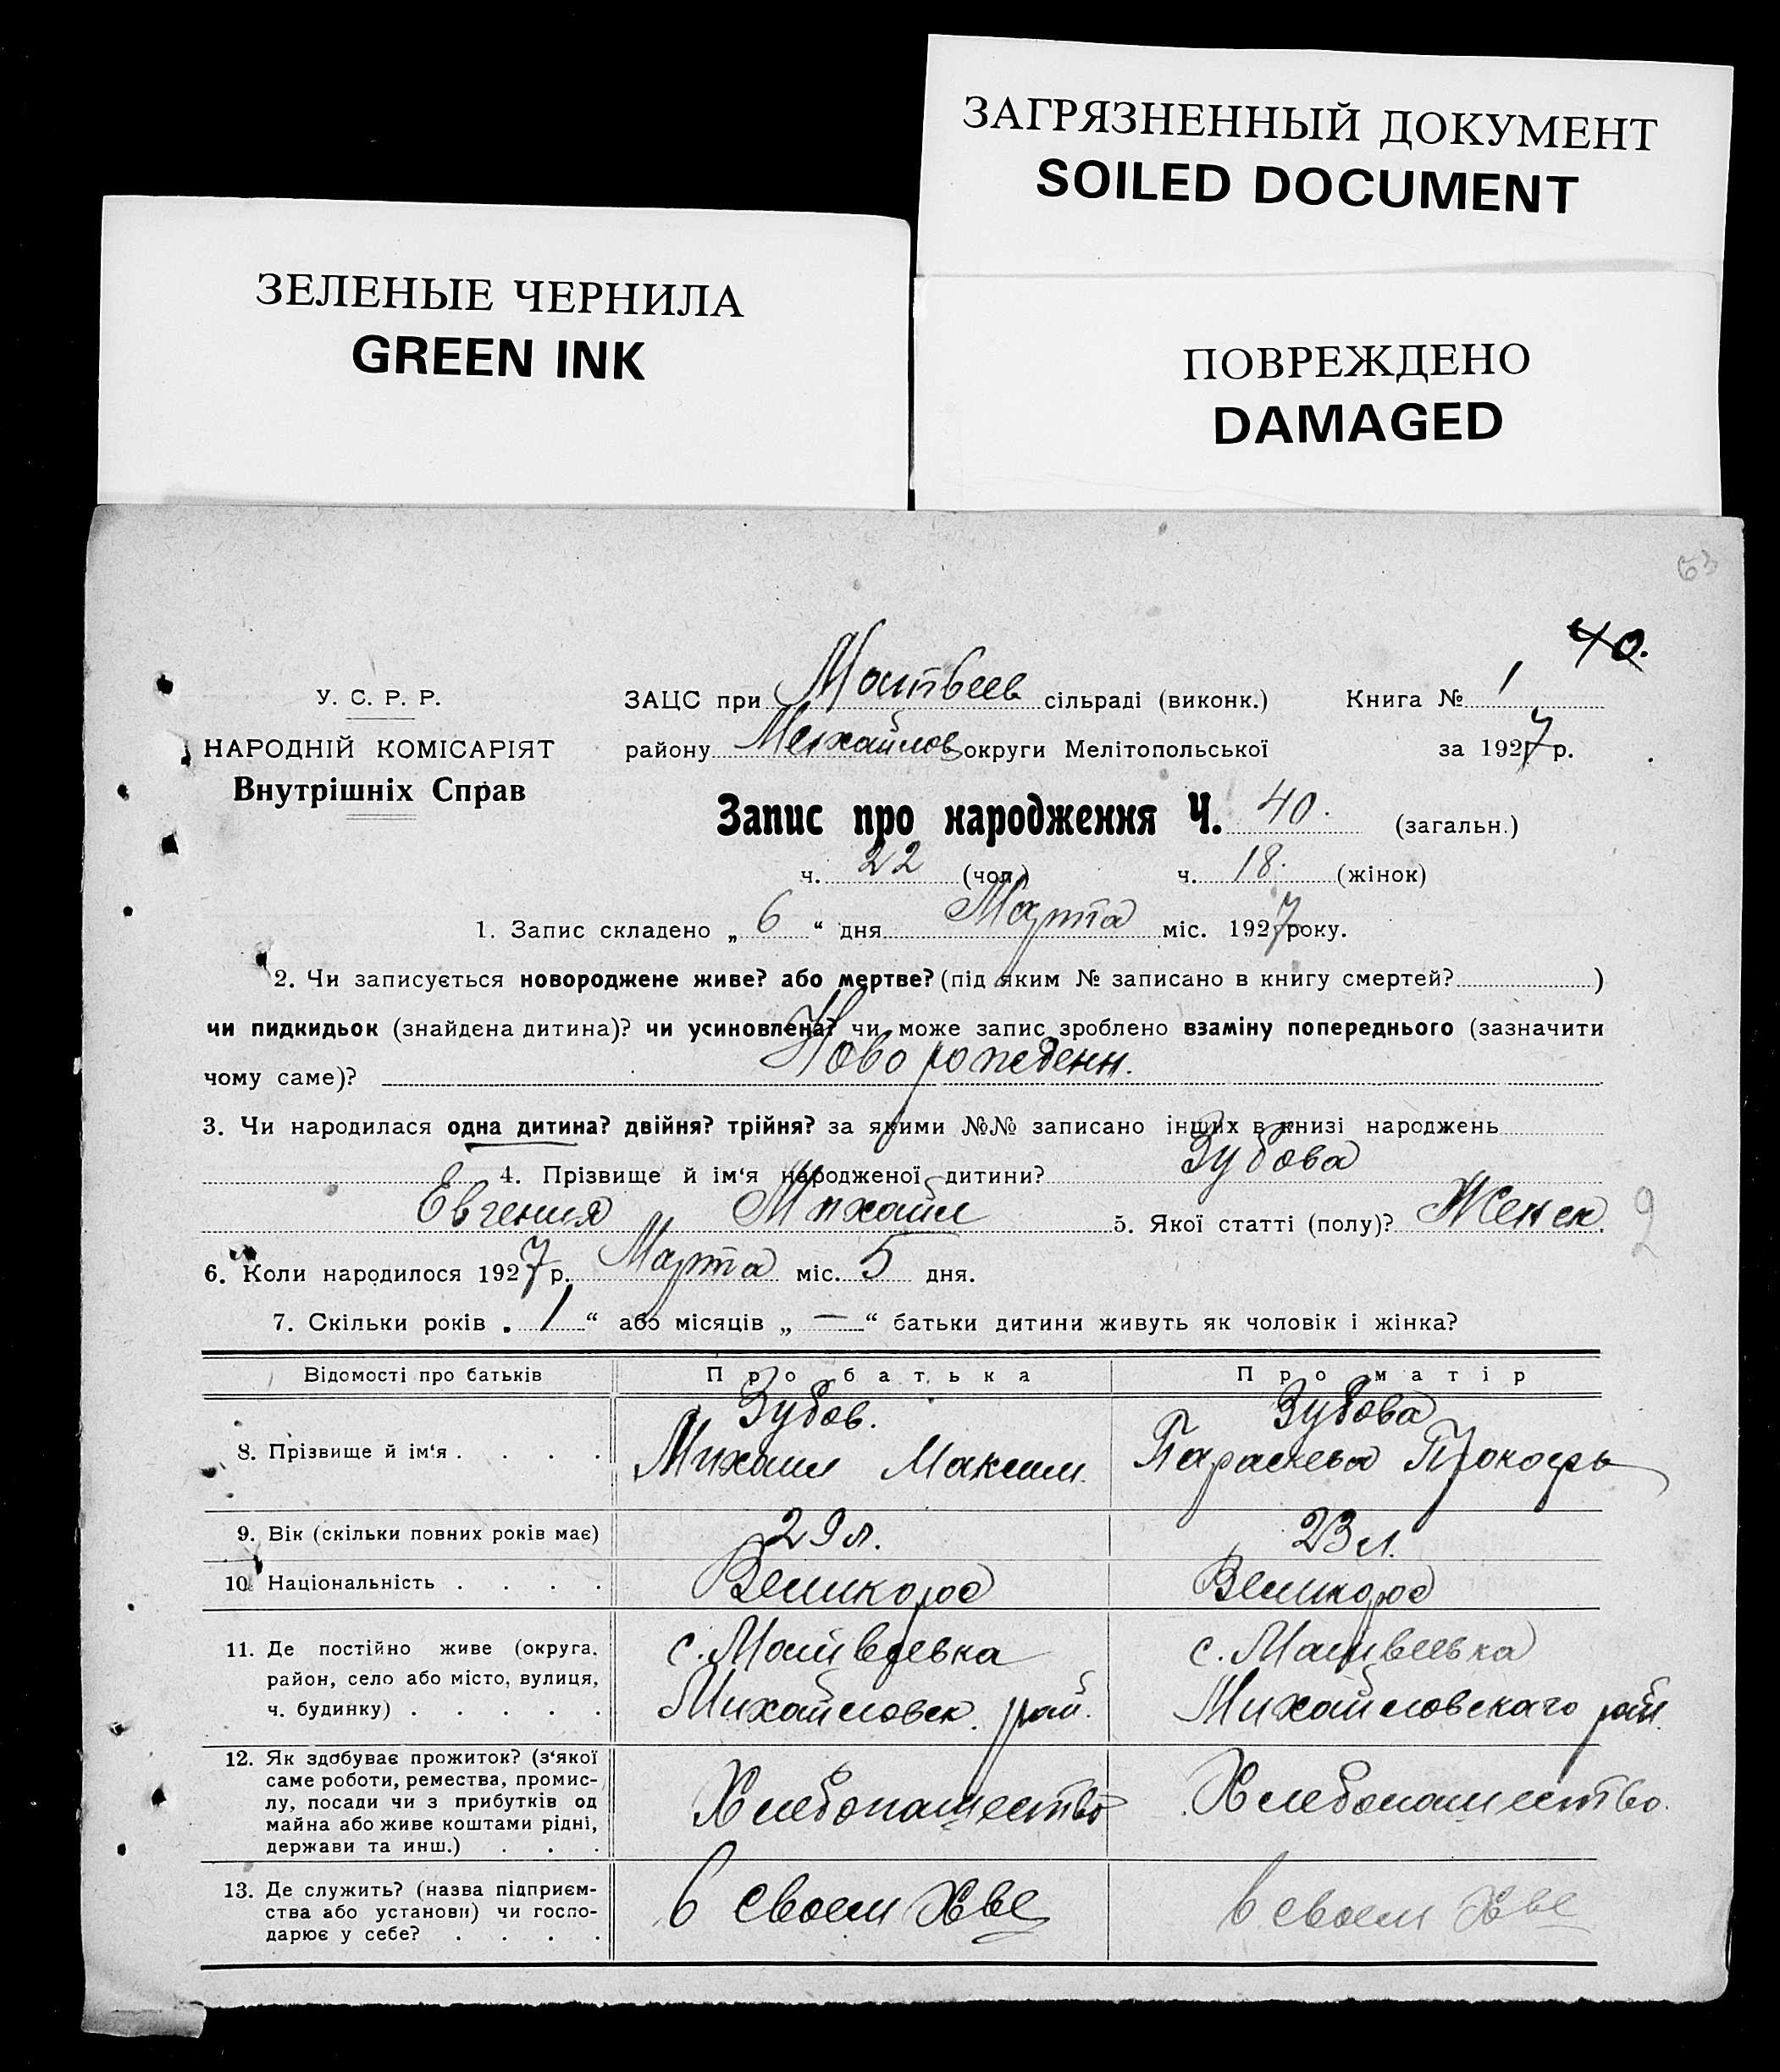 ЗАГРЯЗНЕННЫЙ ДОКУМЕНТ
SOILED DOCUMENT
ЗЕЛЕНЫЕ ЧЕРНИЛА
GREEN INK
ПОВРЕЖДЕНО
DAMAGED
63
40.
У. С. Р. Р. ЗАЦС при Матвеев сільраді (виконк.) Книга № 1
НАРОДНІЙ КОМІСАРІЯТ району Михайлов округи Мелітопольської за 1927 р.
Внутрішніх Справ
Запис про народження Ч. 40. (загальн.)
ч. 22 (чол.) ч. 18. (жінок)
1. Запис складено „ 6 “ дня Марта міс. 1927 року.
2. Чи записується новороджене живе? або мертве? (під яким № записано в книгу смертей? )
чи пидкидьок (знайдена дитина)? чи усиновлена? чи може запис зроблено взаміну попереднього (зазначити
чому саме)? Новорожденн.
3. Чи народилася одна дитина? двійня? трійня? за якими №№ записано інших в книзі народжень
4. Прізвище й ім‘я народженої дитини? Зубова
Евгения Михайл 5. Якої статті (полу)? Женск. 2
6. Коли народилося 1927 р. Марта міс. 5 дня.
7. Скільки років „ 1 “ або місяців „ — “ батьки дитини живуть як чоловік і жінка?
Відомості про батьків Про батька Про матір
Зубов. Зубова
8. Прізвище й ім‘я . . . . Михаил Максим. Парасковья Прокофь
9. Вік (скільки повних років має) 29 л. 23 л.
10. Національність . . . . Великорос Великорос
11. Де постійно живе (округа, с. Матвеевка с. Матвеевка
район, село або місто, вулиця, Михайловск. рай. Михайловскаго рай.
ч. будинку) . . . . .
12. Як здобуває прожиток? (з‘якої
саме роботи, ремества, промис-
лу, посади чи з прибутків од Хлебопашество Хлебопашество.
майна або живе коштами рідні,
держави та инш.) . . .
13. Де служить? (назва підприєм-
ства або установи) чи госпо- в своем Хве в своем Хве
дарює у себе? . . . .